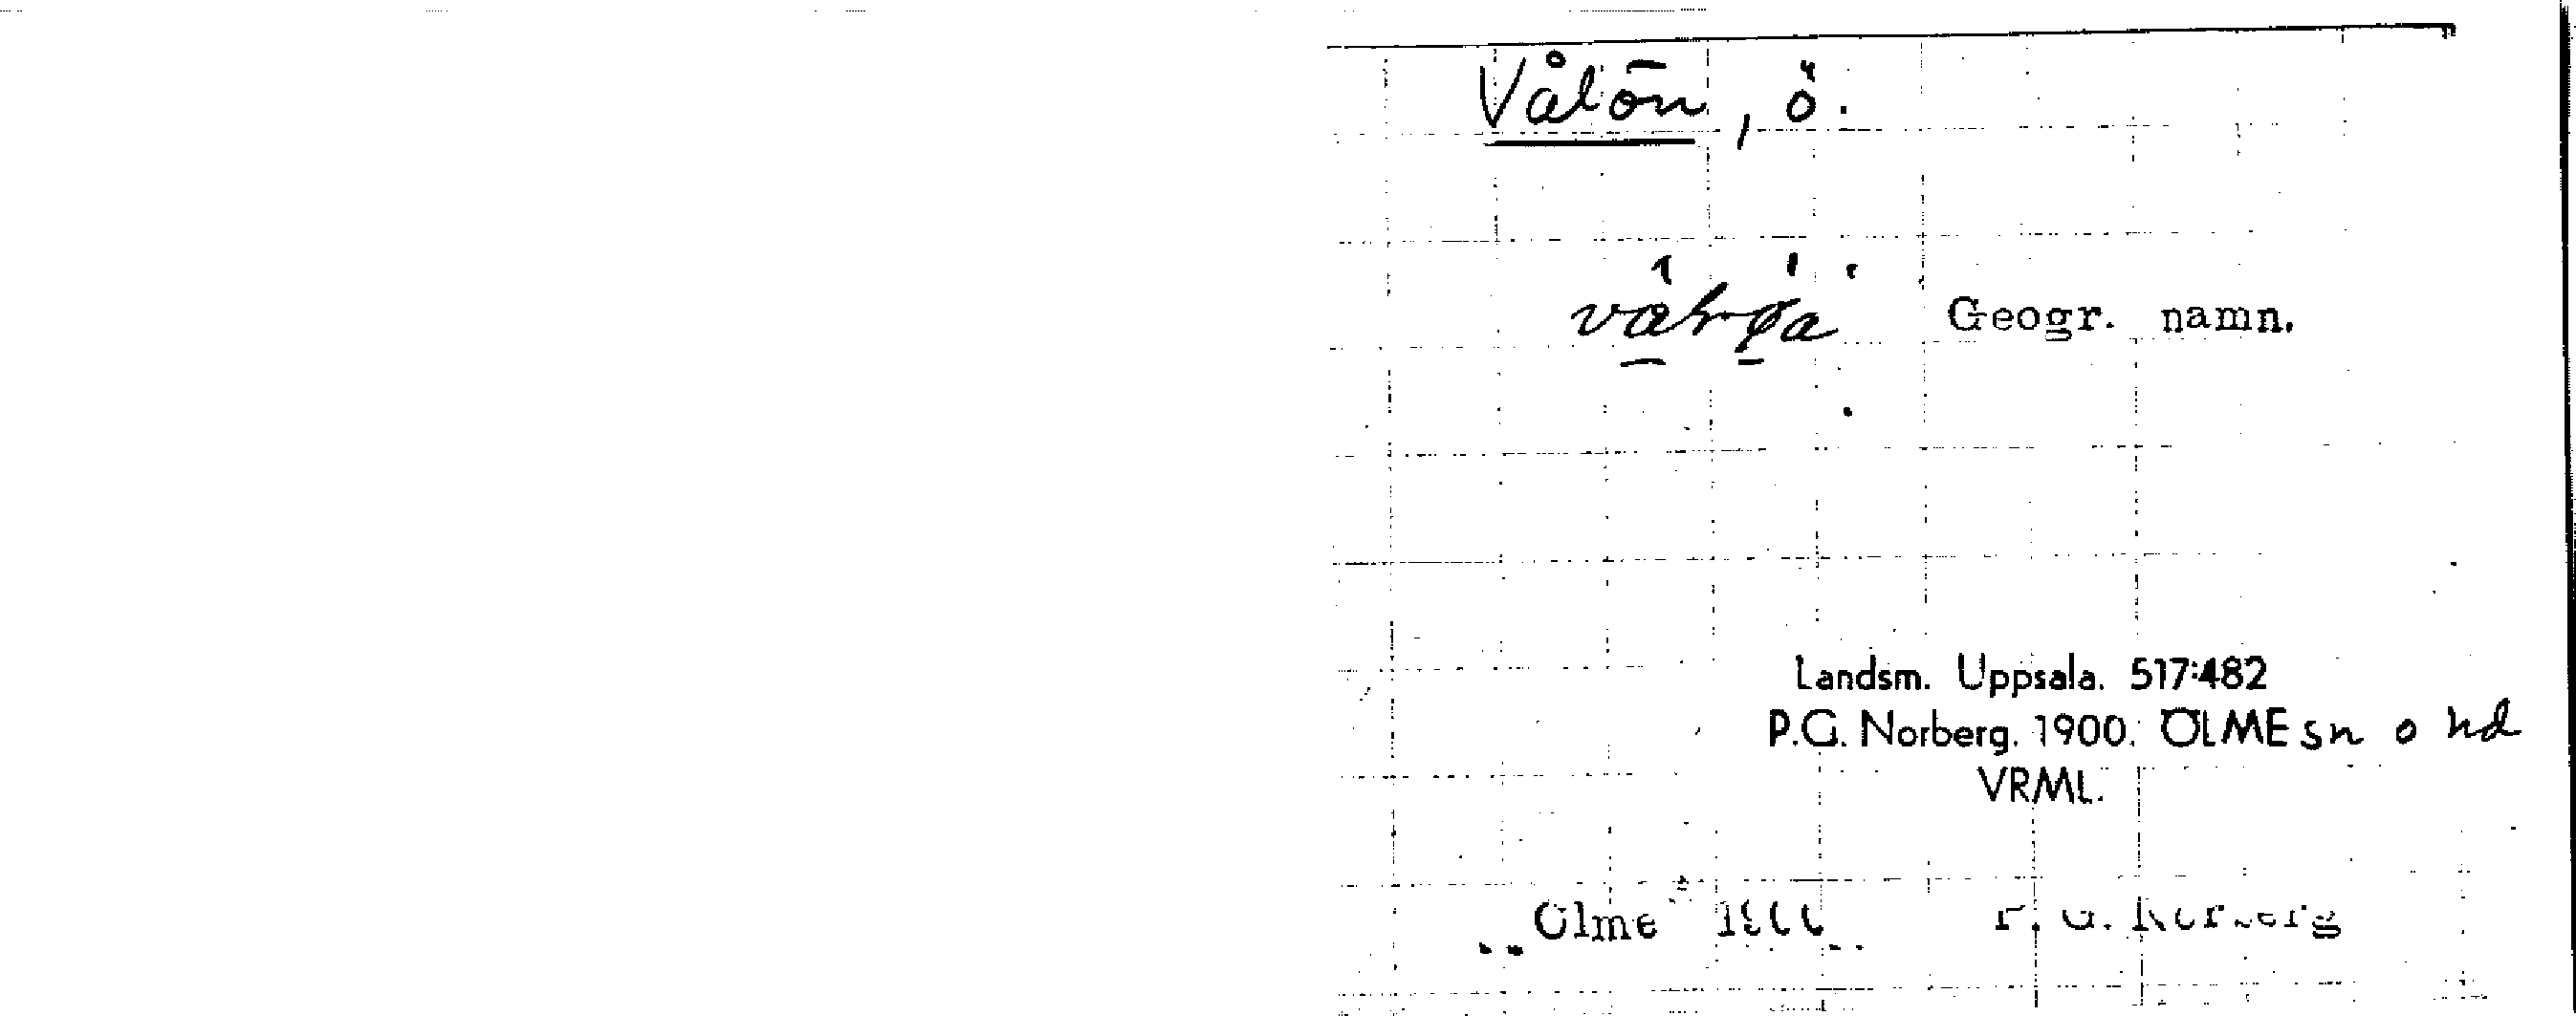 Vålön, ö.
Geogr. namn.
Landsm. Uppsala. 517:482
P.G. Norberg. 1900. ÖLME sn o hd
VRML.
Ölme 1900 P. G. Norberg